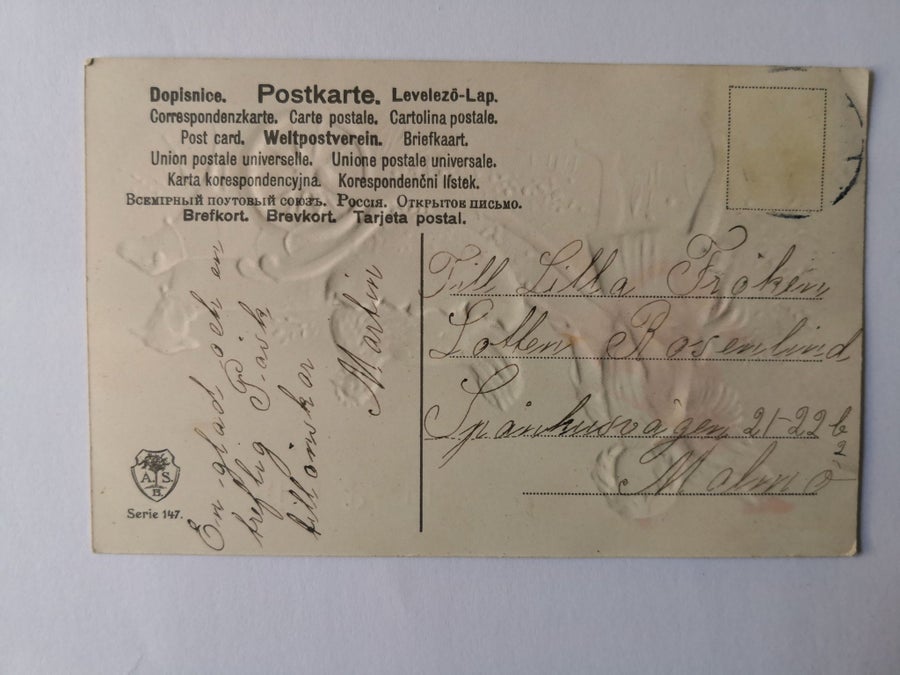 Dopisnice. Postkarte. Levelező-Lap.
Correspondenzkarte. Carte postale. Cartolina postale.
Post card. Weltpostverein. Briefkaart.
Union postale universelle. Unione postale universale.
Karta korespondencyjna. Korespondenčni lístek.
Всемірный поутовый союзъ. Россія. Открытое письмо.
Brefkort. Brevkort. Tarjeta postal.
En glad och en
treflig Påsk
tillönskar
Martin
Till Lilla Fröken
Lotten Rosenlind
Spånhusvägen 21-22 b
2
Malmö
A. S.
B.
Serie 147.